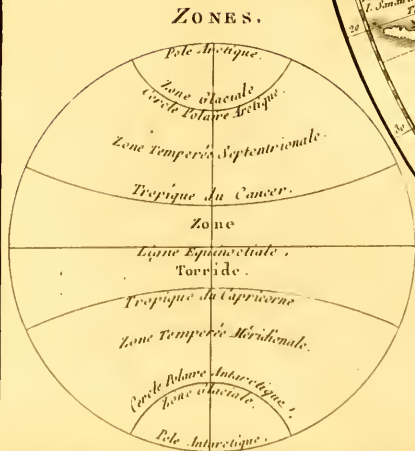 ZONES.
Pole Arctique.
Zone Glaciale
Cercle Polaire Arctique.
Zone Temperée Septentrionale.
Tropique du Cancer.
Zone
Ligne Equinoctiale.
Torride.
Tropique du Capricorne
Zone Temperée Méridionale.
Cercle Polaire Antarctique.
Zone Glaciale.
Pole Antarctique.
20
30